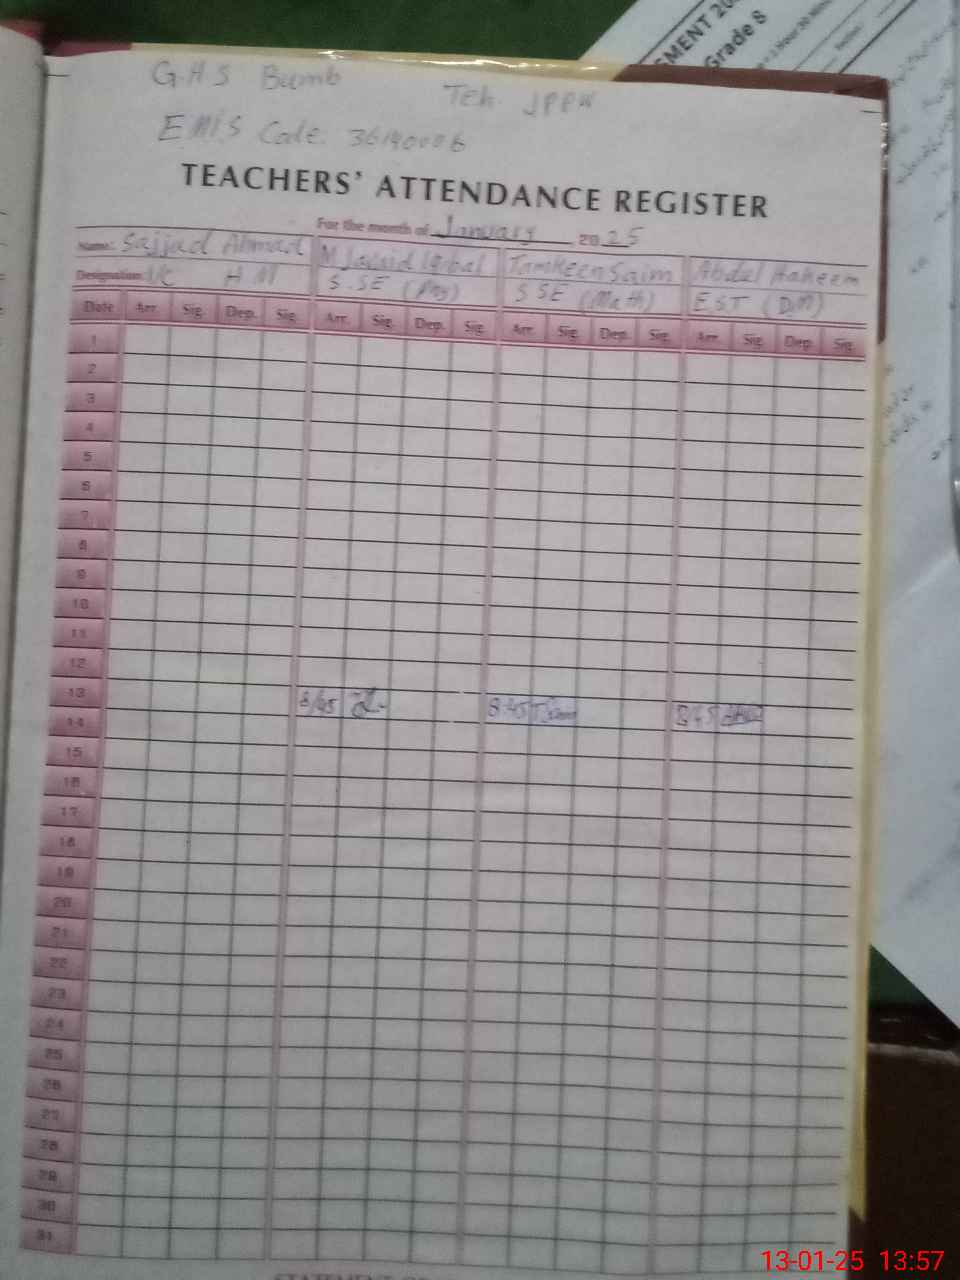 G.H.S Bumb Teh. JPPW
EMIS Code. 36140006
TEACHERS' ATTENDANCE REGISTER
For the month of January 2025
Name: Sajjad Ahmad M Javaid Iqbal Tamkeen Saim Abdul Haheem
Designation: I/C H.M S.SE (Phy) S SE (Math) EST (DM)
Date Arr. Sig. Dep. Sig. Arr. Sig. Dep. Sig. Arr. Sig. Dep. Sig. Arr. Sig. Dep. Sig.
1
2
3
4
5
6
7
8
9
10
11
12
13 8/45 8:45 8:45
14
15
16
17
18
19
20
21
22
23
24
25
26
27
28
29
30
31
SMENT 20
Grade 8
13-01-25 13:57